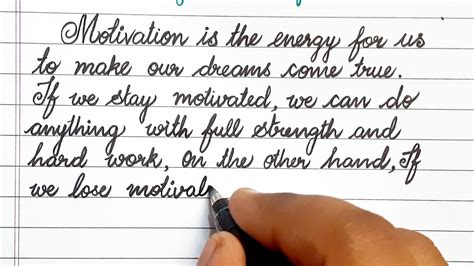 Motivation is the energy for us
to make our dreams come true.
If we stay motivated, we can do
anything with full strength and
hard work, on the other hand, If
we lose motivat